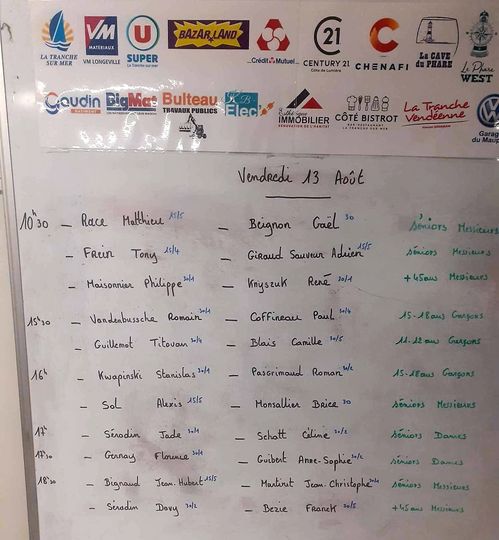 LA TRANCHE SUR MER
VM MATÉRIAUX
VM LONGEVILLE
SUPER
BAZARLAND
...Crédit Mutuel...
CENTURY 21
Côte de Lumière
CHENAFI
La CAVE DU PHARE
Le Phare WEST
Gaudin
BigMat
Bulteau
TRAVAUX PUBLICS
Elec
IMMOBILIER
CÔTÉ BISTROT
La Tranche Vendéenne
Garage du Maup
Vendredi 13 Août
10h30 - Race Matthieu 15/5 - Beignon Gaël 30 séniors Messieurs
- Frein Tony 15/4 - Giraud Sauveur Adrien 15/5 séniors Messieurs
- Maisonnier Philippe 30/1 - Knyszuk René 30/1 +45ans Messieurs
15h30 - Vandenbussche Romain 30/1 - Coffineau Paul 30/4 15-18ans Garçons
- Guillemot Titouan 30/4 - Blais Camille 30/5 11-12 ans Garçons
16h - Kwapinski Stanislas 30/1 - Pasgrimaud Roman 30/2 15-18ans Garçons
- Sol Alexis 15/5 - Monsallier Brice 30 séniors Messieurs
17h - Séradin Jade 30/1 - Schott Céline 30/2 séniors Dames
17h30 - Gernay Florence 30/1 - Guibert Anne-Sophie 30/2 séniors Dames
18h30 - Bignaud Jean-Hubert 15/5 - Martinet Jean-Christophe 30/1 séniors Messieurs
- Séradin Davy 30/2 - Bezie Franck 30/5 +45ans Messieurs